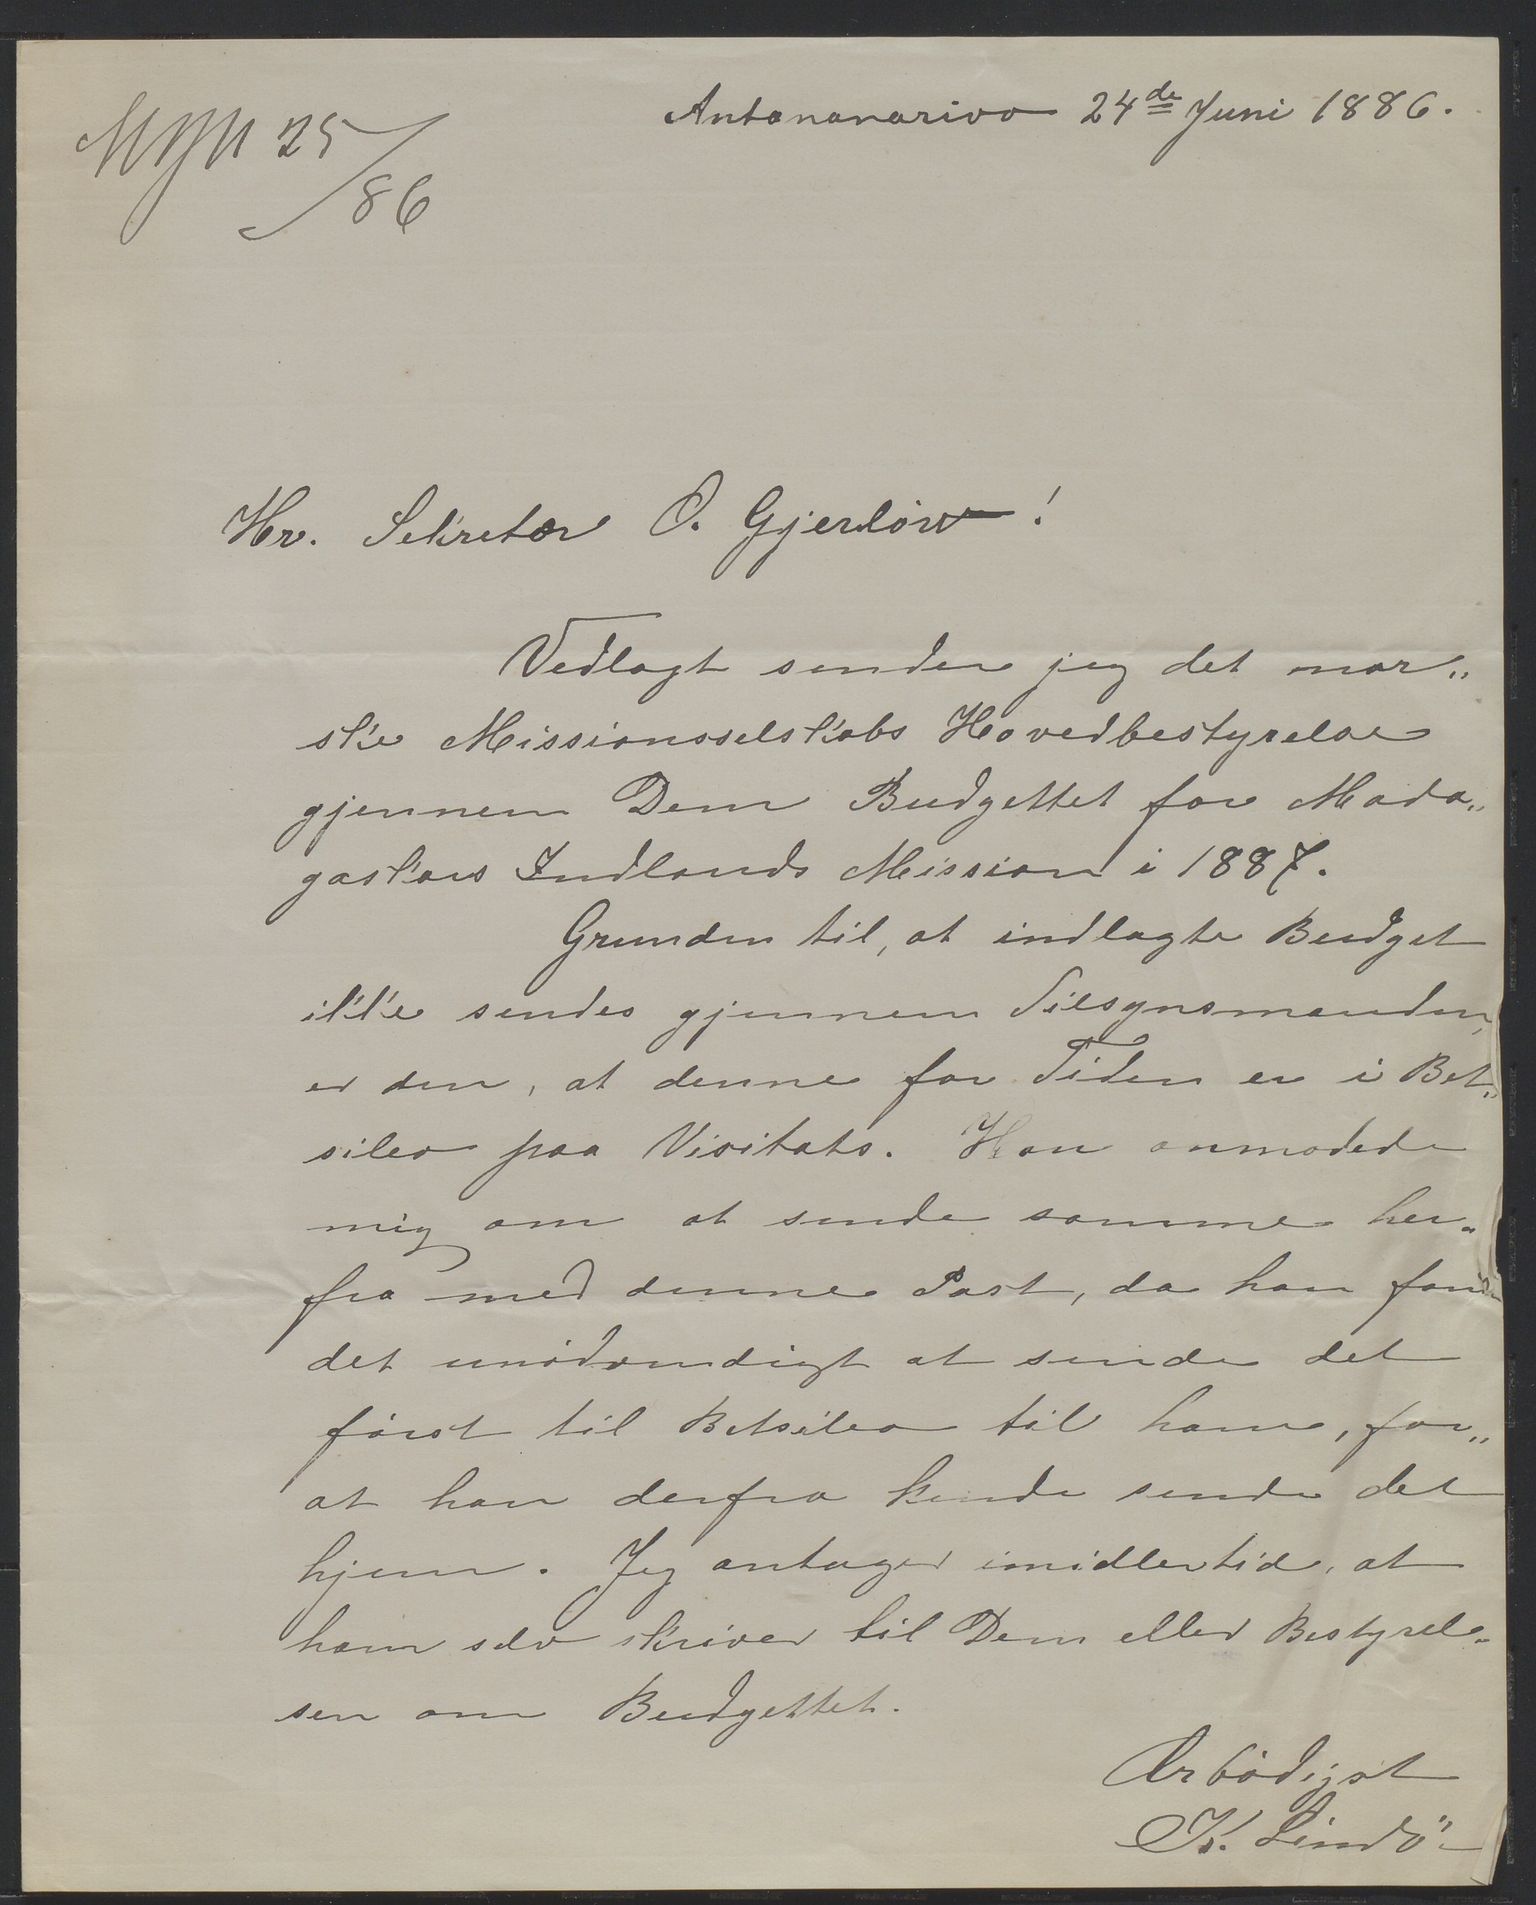 Antananarivo 24de Juni 1886.
25/86
Hr. Sekretær O. Gjerløw!
Vedlagt sender jeg det nor„
ske Missionsselskabs Hovedbestyrelse
gjennem Dem Budgettet for Mada„
gaskars Indlands Mission i 1887.
Grunden til, at indlagte Budget
ikke sendes gjennem Tilsynsmanden,
er den, at denne for Tiden er i Bet„
sileo paa Visitats. Han anmodede
mig om at sende samme her„
fra med denne Post, da han fand
det unødvendigt at sende det
først til Betsileo til ham, for„
at han derfra kunde sende det
hjem. Jeg antager imidlertid, at
han selv skriver til Dem eller Bestyrel„
sen om Budgettet.
Ærbødigst
K. Lindö